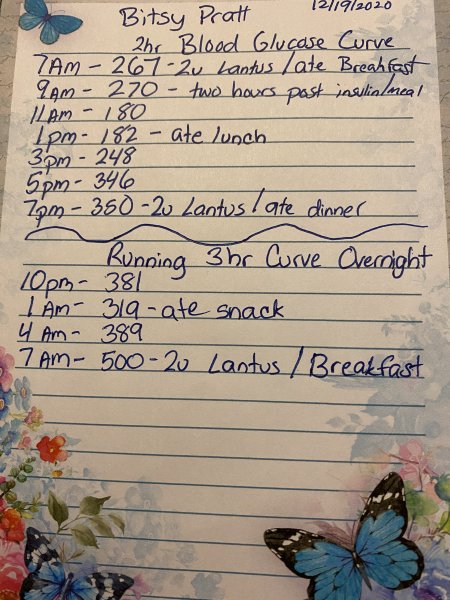 12/19/2020
Bitsy Pratt
2hr Blood Glucose Curve
7Am - 267 - 2u Lantus / ate Breakfast
9Am - 270 - two hours past insulin/meal
11Am - 180
1pm - 182 - ate lunch
3pm - 248
5pm - 346
7pm - 350 - 2u Lantus / ate dinner
Running 3hr Curve Overnight
10pm - 381
1Am - 319 - ate snack
4Am - 389
7Am - 500 - 2u Lantus / Breakfast